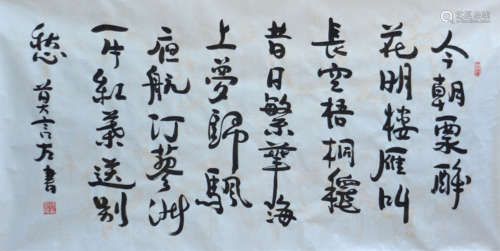 今朝票醉
花明楼雁叫
長空梧桐穩
昔日繁華海
上夢歸颿
夜航汀蓼洲
一片紅葉送别
愁 莫言左書